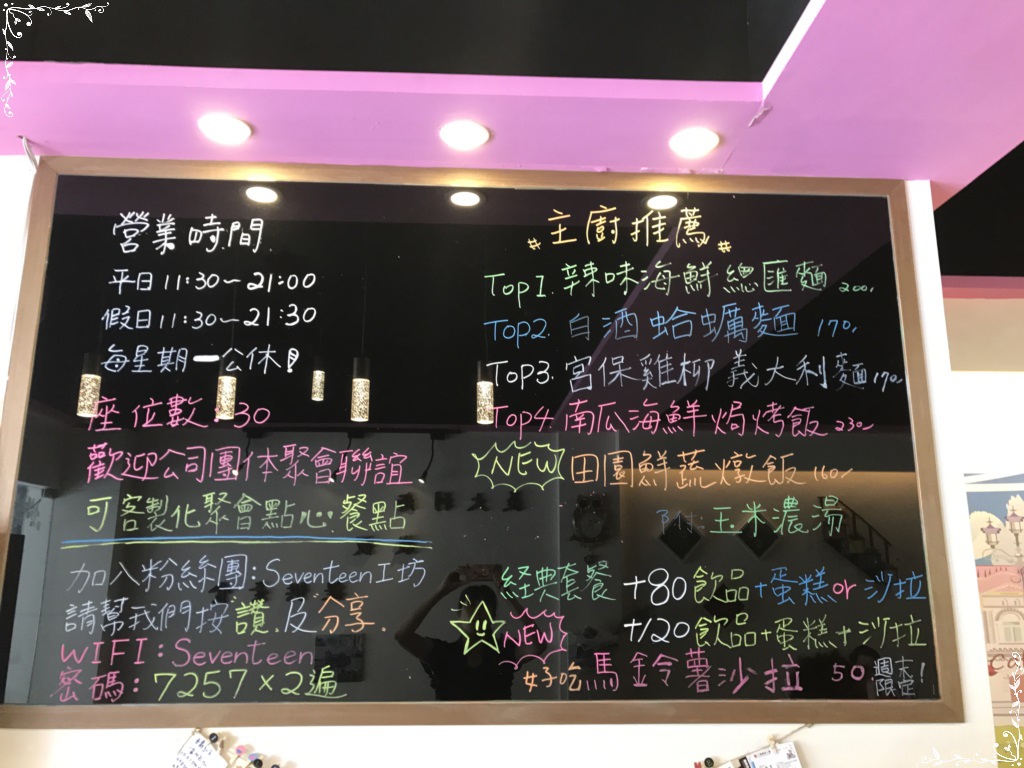 營業時間
平日11:30~21:00
假日11:30~21:30
每星期一公休!
座位數:30
歡迎公司團体聚會聯誼.
可客製化聚會點心..餐點
加入粉絲團:Seventeen工坊
請幫我們按讚及分享.
WIFI:Seventeen
密碼:7257×2遍
#主廚推薦#
Top1.辣味海鮮總匯麵 200.
Top2.白酒蛤蠣麵 170.
Top3.宮保雞柳義大利麵 170.
Top4.南瓜海鮮焗烤飯 230
NEW 田園鮮蔬燉飯 160
附:玉米濃湯
経典套餐 +80飲品+蛋糕or沙拉
+120飲品+蛋糕+沙拉
NEW 好吃馬鈴薯沙拉 50 週末限定!